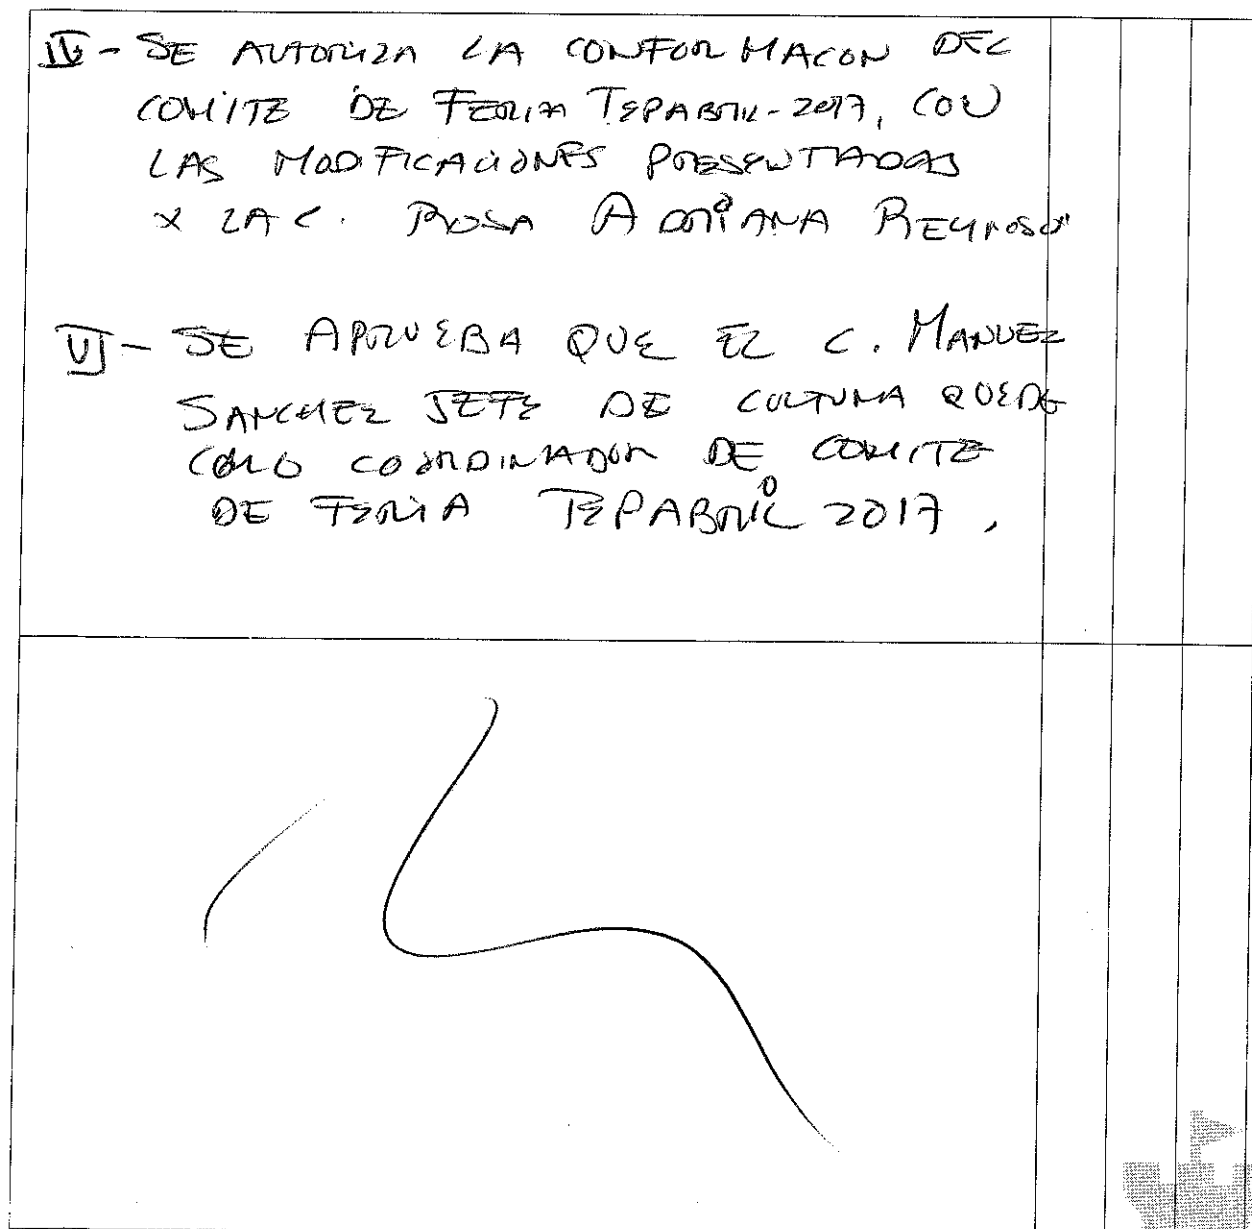 IV - SE AUTORIZA LA CONFORMACON DEL
COMITE DE FERIA TEPABRIL-2017, CON
LAS MODIFICACIONES PRESENTADAS
X LA C. ROSA ADRIANA REYNOSO
VI - SE APRUEBA QUE EL C. MANUEL
SANCHEZ JEFE DE CULTURA QUEDE
COMO COORDINADOR DE COMITE
DE FERIA TEPABRIL 2017,